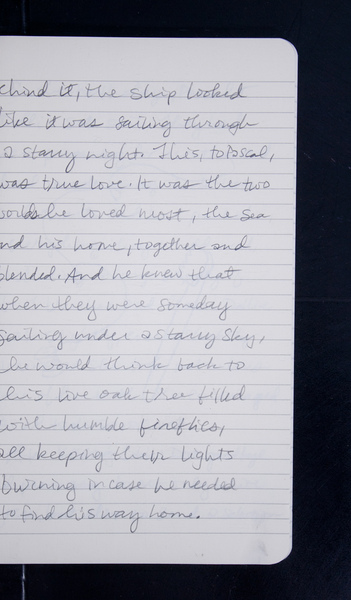 ehind it, the ship looked
like it was sailing through
a starry night. This, to Pascal,
was true love. It was the two
worlds he loved most, the sea
and his home, together and
blended. And he knew that
when they were someday
sailing under a starry sky,
he would think back to
his live oak tree filled
with humble fireflies,
all keeping their lights
burning in case he needed
to find his way home.